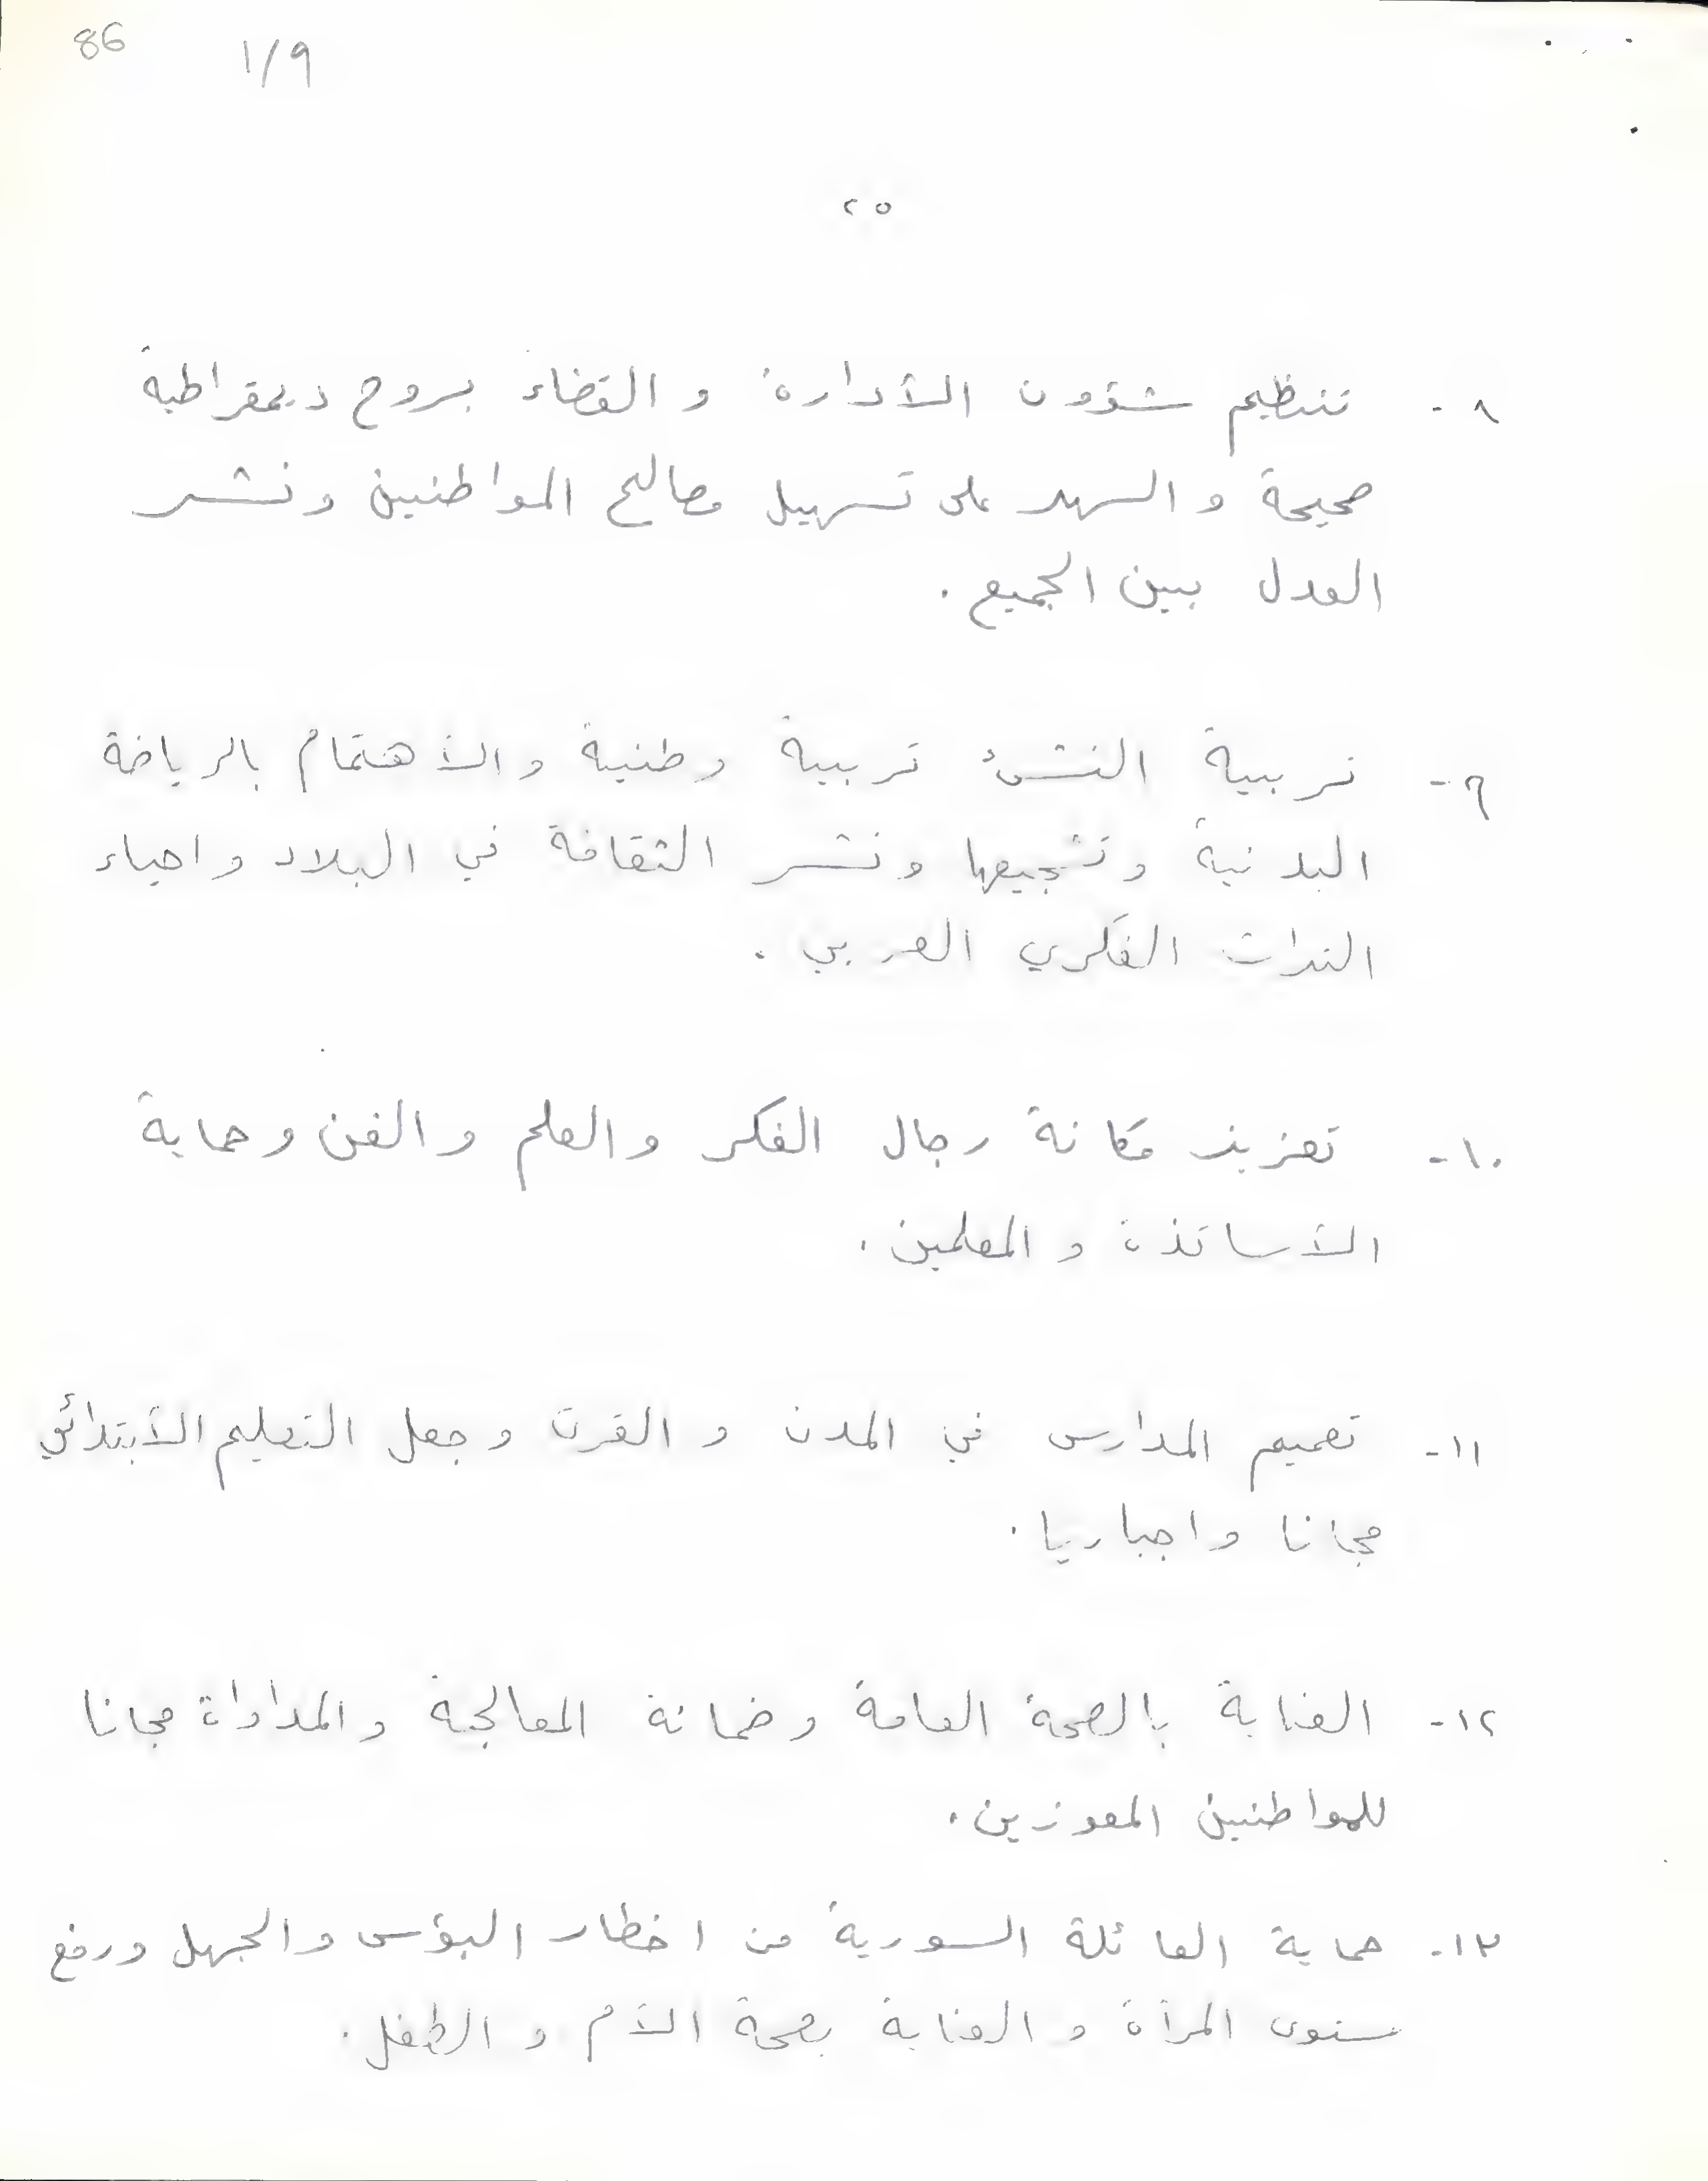 86
١/٩
٢٥
٨- تنظيم شؤون الأدارة و القضاء بروح ديمقراطية
صحيحة و السهر على تسهيل مصالح المواطنين ونشر
العدل بين الجميع .
٩- تربية النشئ تربية وطنية والأهتمام بالرياضة
البدنية وتشجيعها ونشر الثقافة في البلاد واحياء
التراث الفكري العربي .
١٠- تعزيز مكانة رجال الفكر والعلم والفن وحماية
الأساتذة و المعلمين .
١١- تعميم المدارس في المدن و القرى وجعل التعليم الأبتدائي
مجانا واجباريا .
١٢- العناية بالصحة العامة وضمانة المعالجة والمداواة مجانا
للمواطنين المعوزين .
١٣- حماية العائلة السورية من اخطار البؤس والجهل ورفع
مستوى المرأة و العناية بصحة الأم و الطفل .